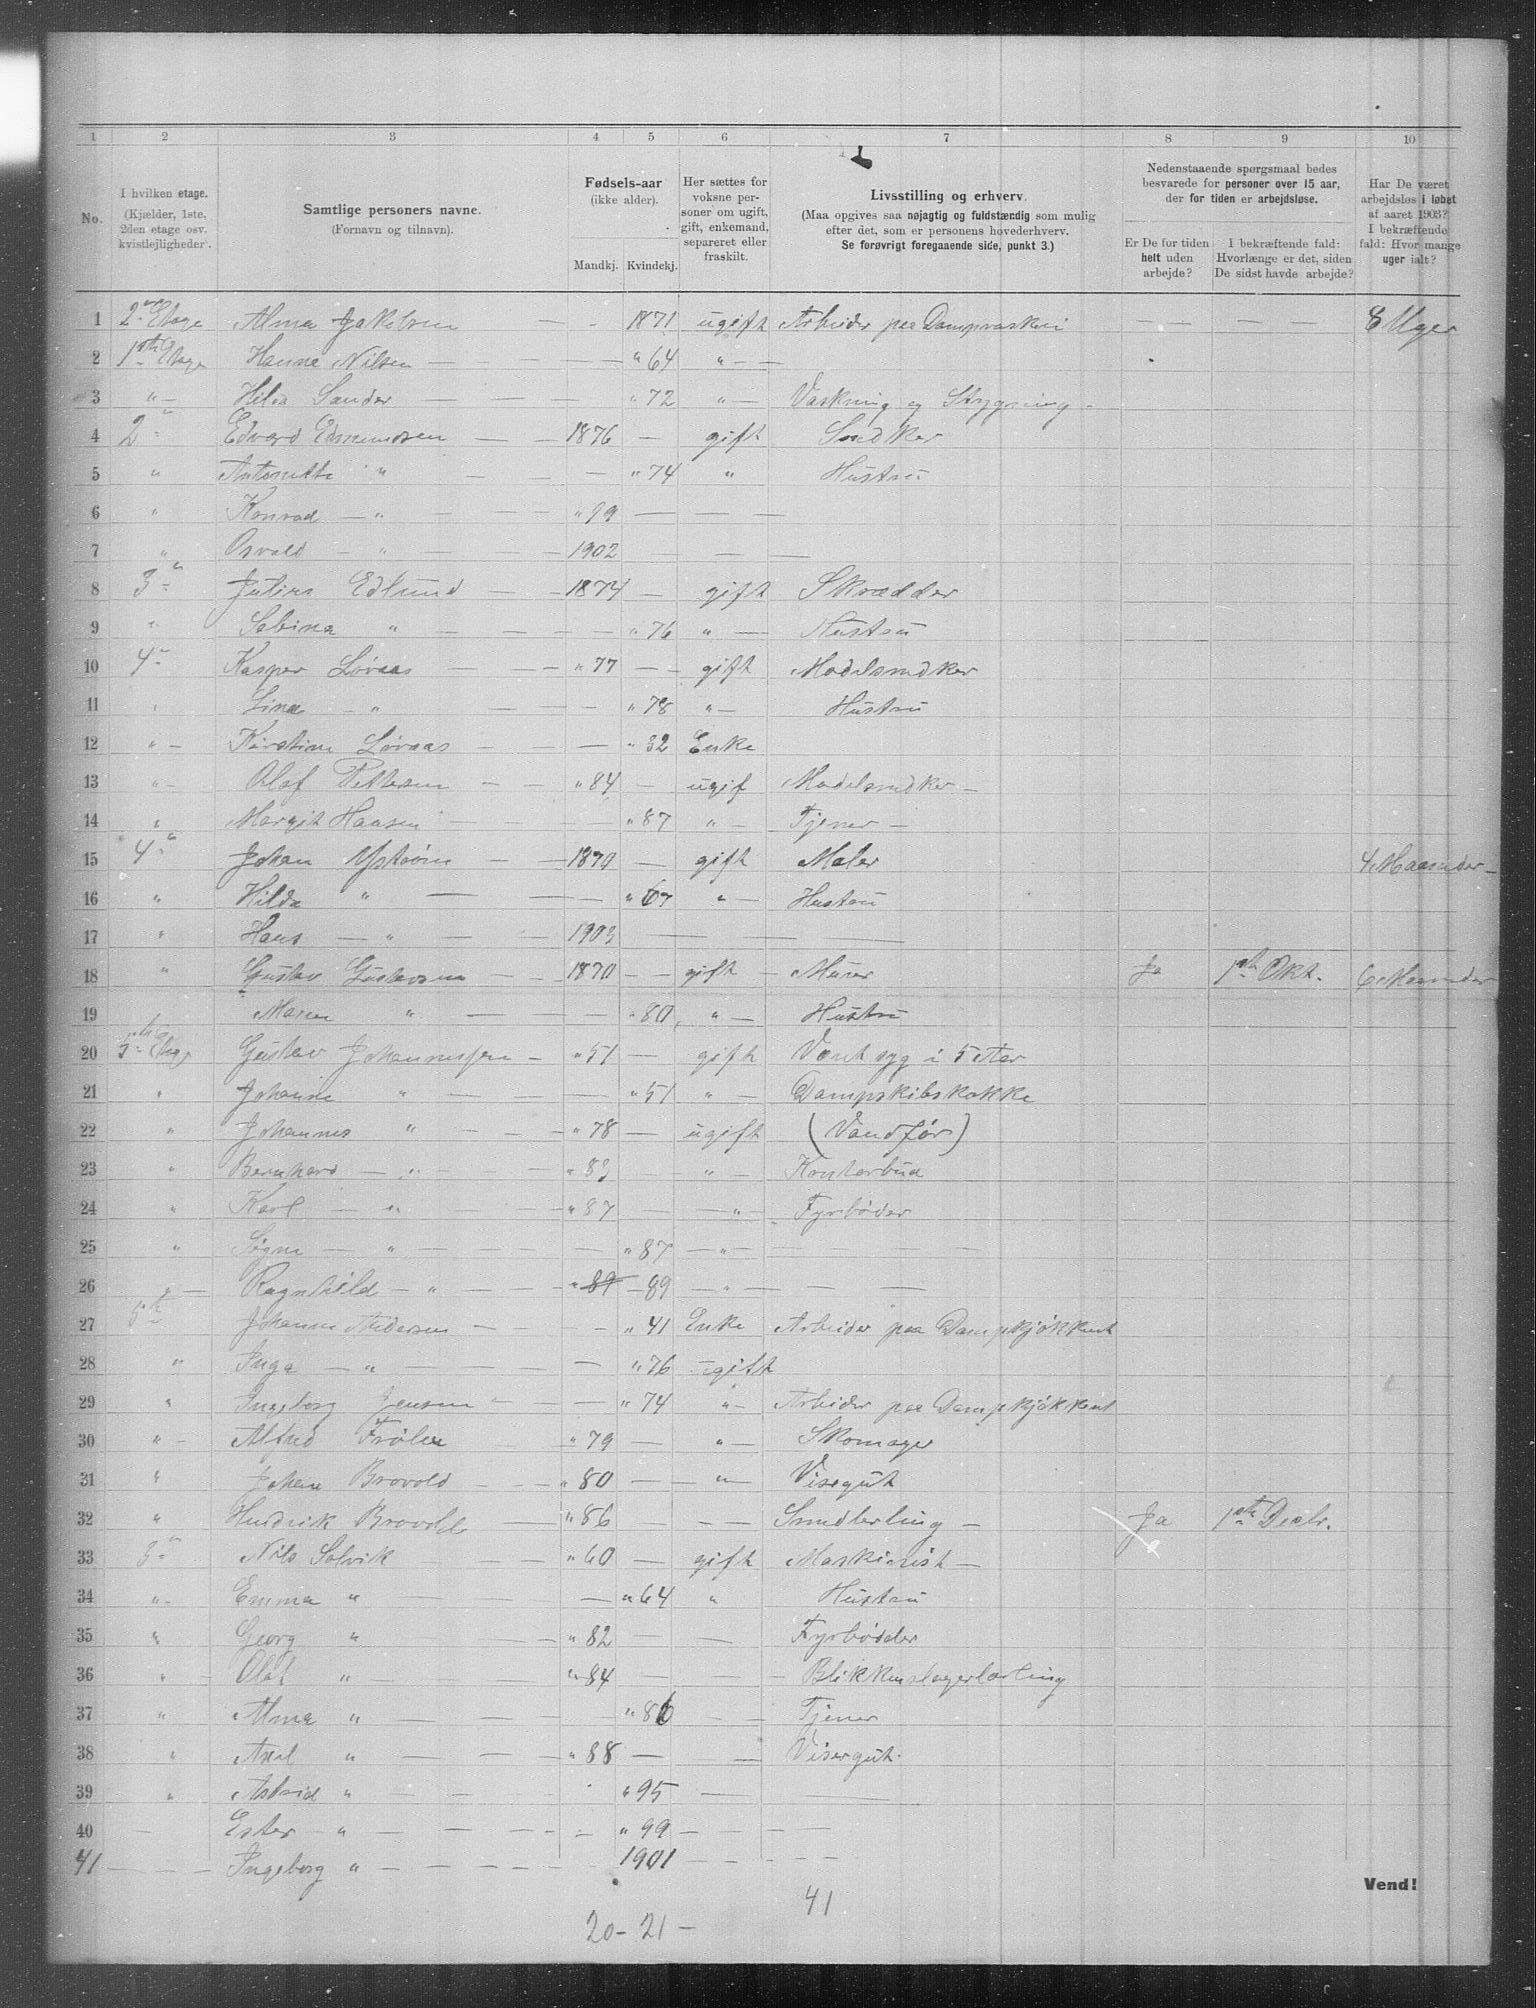 1 2 3 4 5 6 7 8 9 10
No.
I hvilken etage. (Kjælder, 1ste, 2den etage osv. kvistlejligheder).
Samtlige personers navne. (Fornavn og tilnavn).
Fødsels-aar (ikke alder). Mandkj. Kvindekj.
Her sættes for voksne personer om ugift, gift, enkemand, separeret eller fraskilt.
Livsstilling og erhverv. (Maa opgives saa nøjagtig og fuldstændig som mulig efter det, som er personens hovederhverv. Se forøvrigt foregaaende side, punkt 3.)
Nedenstaaende spørgsmaal bedes besvarede for personer over 15 aar, der for tiden er arbejdsløse.
Er De for tiden helt uden arbejde?
I bekræftende fald: Hvorlænge er det, siden De sidst havde arbejde?
Har De været arbejdsløs i løbet af aaret 1903? I bekræftende fald: Hvor mange uger ialt?
1 2den Etage Alma Jakobsen — - 1871 ugift Arbeider paa Dampvaskeri — — — — 8 Uger
2 1ste Etage Hanna Nilsen — — — " 64 " — —
3 " — Hilda Sander — — — " 72 " — Vaskning og Strygning -
4 2 " Edvard Edmundsen — — 1876 — gift Snedker
5 " Antonette " — — — " 74 " Hustru
6 " Konrad — " — — " 99 — — —
7 " Osvald — " — — 1902 — — —
8 3 " Julius Edlund — — 1874 — gift Skrædder
9 " Sabina " — — — " 76 " — Hustru
10 4 " Kasper Løvaas — — " 77 — — gift Modelsnedker
11 " Lina — " — — — " 78 " — Hustru
12 " — Kirstine Løvaas — — " 32 Enke
13 " — Olaf Pettersen — " 84 — ugif Modelsnedker —
14 " Margit Hansen — — — " 87 " — Tjener —
15 4 " Johan Ystrøm — — 1870 — gift Maler 4 Maaneder —
16 " Hilda " — — — " 67 " — Hustru
17 " Hans — " — — 1903 — — —
18 " Gustav Gustavsen — 1870 — — gift — Murer Ja 1ste Okt. 6 Maaneder
19 Maren " — — — " 80 " — Hustru
20 5te Etage Gustav Johannessen — " 51 — gift Været syg i 5 Aar
21 " Johanne " — — — " 51 " — Dampskibskokke
22 " Johannes " — " 78 — ugift (Vandfør)
23 " Bernhard — " — — " 83 — " — Kontorbud
24 " Karl — " — — " 87 — — " Fyrbøder
25 " Signe — " — — — " 87 — " — — — —
26 " — Ragnhild — " — — " 89 — 89 — " — — —
27 5te Johanne Andersen — — - " 41 Enke Arbeider paa Dampkjøkkent
28 " Inga — " — — — — " 76 ugift
29 " Ingeborg Jensen — — " 74 " - Arbeider paa Dampkjøkkent
30 " - Alfred — " 79 — " — Skomager
31 " Johan Brovold — — " 80 — — " Visergut
32 " Hendrik Brovold — " 86 — — — Ja 1ste Decbr.
33 3 " Nils Solvik — — " 60 — gift Maskinist —
34 " — Emma " — — — " 64 " Hustru
35 " Georg " — — " 82 — — Fyrbøder
36 " — Olaf " — — " 84 — — — Blikkenslagerlærling
37 " Alma " — — — " 86 — — — Tjener
38 " Axel " — — " 88 — — Visergut.
39 " Astrid " — " 95 — —
40 — Ester — " — — — — " 99 — — — —
41 — — — Ingeborg " — — — — 1901 — — — —
Vend!
41
20 - 21 —